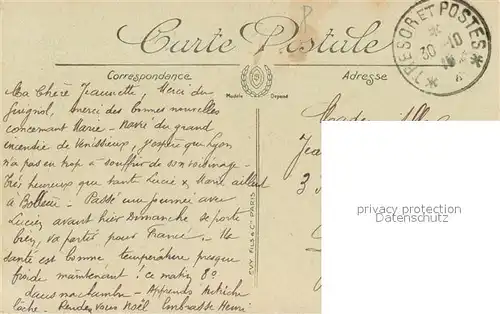 Carte Postale
TRESOR ET POSTES
30 10
Correspondance
Adresse
Modèle Déposé
Ma Chère Jeannette, Merci du
Guignol, merci des bonnes nouvelles
concernant Marie - Navré du grand
incendie de Venissieux, j'espère que Lyon
n'a pas eu trop a souffrir de son voisinage -
Très heureux que tante Lucie & Marie aillent
à Bollène - Passé une journée avec
Lucien avant hier Dimanche se porte
bien, va partir pour France - Ma
santé est bonne température presque
froide maintenant! ce matin 8°
dans ma chambre - Apprends Autriche
lâche - Rendez vous Noël Embrasse Henri
EVY, FILS & Cie PARIS
3
privacy protection
watermark